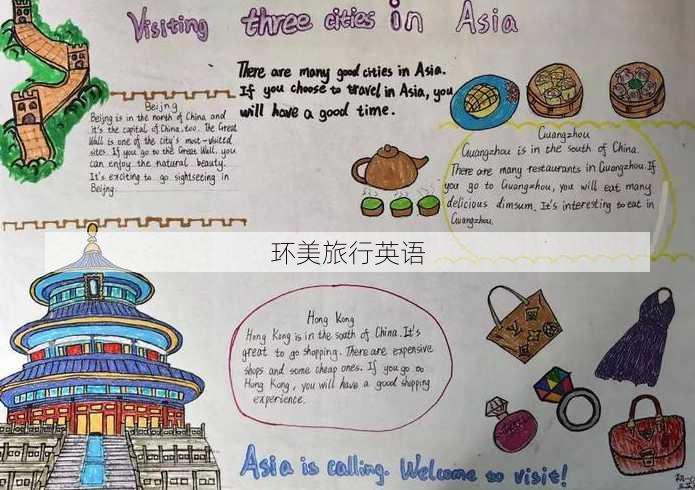 Visiting three cities in Asia
There are many good cities in Asia.
If you choose to travel in Asia, you
will have a good time.
Beijng
Beijng is in the north of China and
it's the capital of China, too. The Great
Wall is one of the city's most-visited
sites. If you go to the Great Wall, you
can enjoy the natural beauty.
It's exciting to go sightseeing in
Beijng.
Guangzhou
Guangzhou is in the south of China.
There are many restaurants in Guangzhou. If
you go to Guangzhou, you will eat many
delicious dimsum. It's interesting to eat in
Guangzhou.
环美旅行英语
Hong Kong
Hong Kong is in the south of China. It's
great to go shopping. There are expensive
shops and some cheap ones. If you go to
Hong Kong, you will have a good shopping
experience.
Asia is calling. Welcome to visit!